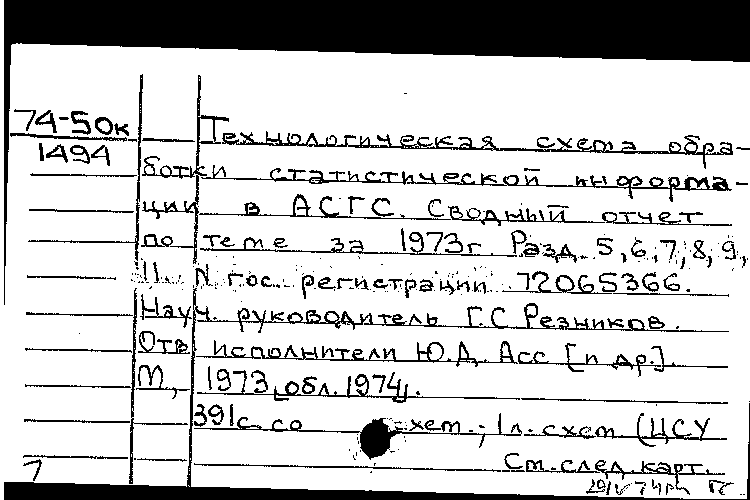 74-50к
1494
Технологическая схема обра-
ботки статистической информа-
ции в АСГС. Сводный отчет
по теме за 1973г. Разд. 5, 6, 7, 8, 9,
11. N гос. регистрации 72065366.
Науч. руководитель Г.С Резников.
Отв исполнители Ю.Д. Асс [и др.].
М., 1973 [обл. 1974].
391с. со схем.; 1л. схем (ЦСУ
См. след. карт.
7